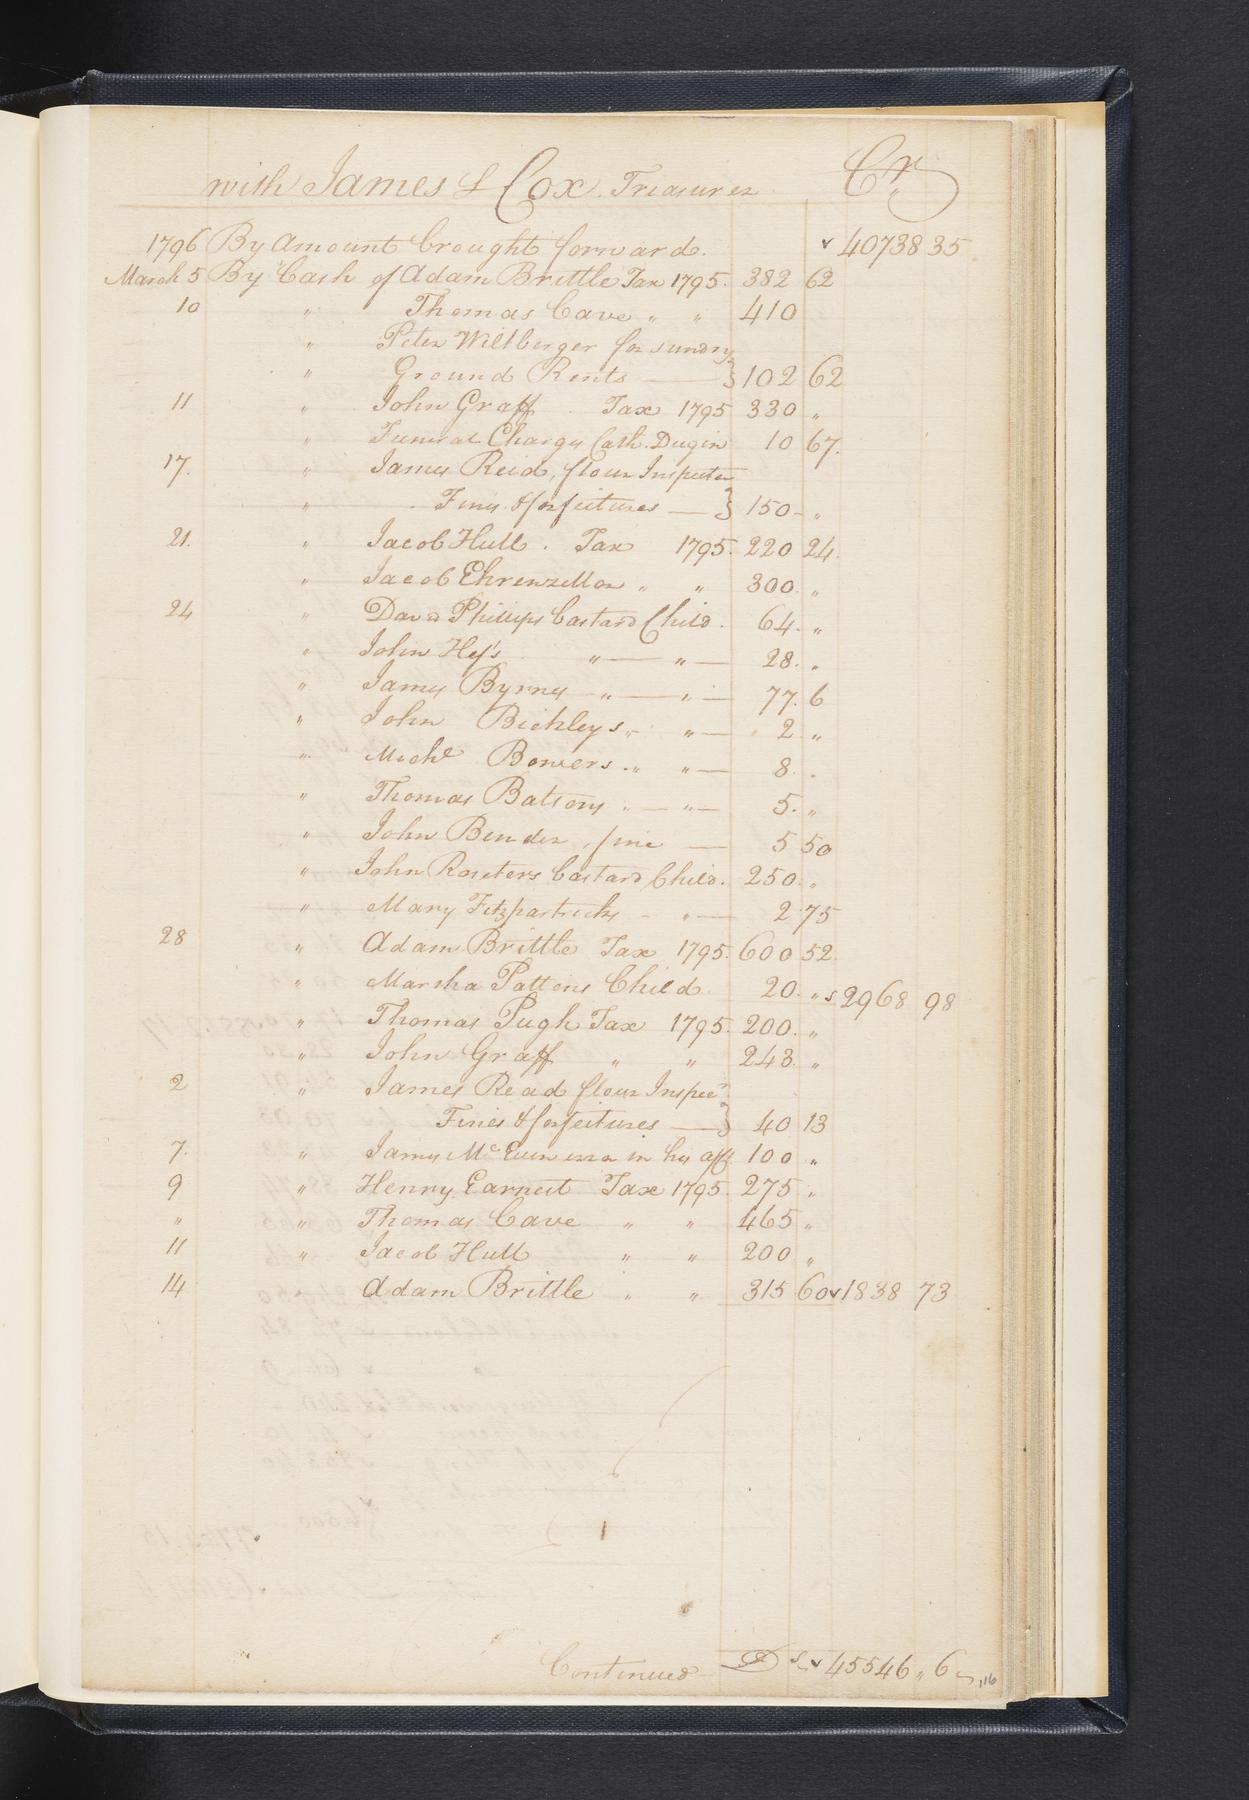 with James S Cox. Treasurer Cr
1796 By Amount brought forward. 40738 35
March 5 By Cash of Adam Brittle Tax 1795. 382 62
10 " Thomas Cave " " 410
" Peter Wiltberger for sundry
" Ground Rents } 102 62
11 " John Graff Tax 1795 330 "
" Funeral Charges Cath. Dugin 10 67.
17. " James Reid, flour Inspector
" Fines & forfeitures } 150 "
21. " Jacob Hull. Tax 1795. 220 24
" Jacob Ehrenzellor " " 300 "
24 " Phillips bastard Child. 64. "
" John Hey's " " 28. "
" James Byrnes " " 77. 6
" John Bickleys " " 2 "
" Michl Bowers " " 8. "
" Thomas Batsons " " 5. "
" John Bender, fine 5 50
" John Roseters bastard Child. 250. "
" Mary Fitzpatricks " 2 75
28 " Adam Brittle Tax 1795. 600 52
" Marsha Pattens Child 20. " 2968 98
" Thomas Pugh Tax 1795. 200. "
" John Graff " " 243 "
2 " James Read flour Inspecr
Fines & forfeitures } 40 13
7. " James McEuen in his aff. 100 "
9 " Henry Earnest Tax 1795. 275 "
" " Thomas Cave " " 465 "
11 " Jacob Hull " " 200 "
14 " Adam Brittle " " 315 60 1838 73
Continued 45546 " 6
116